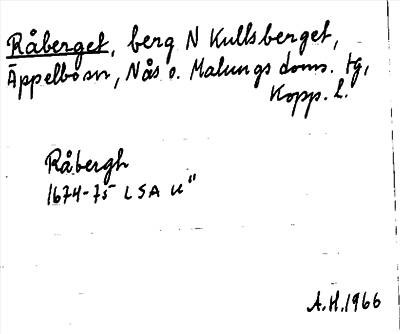 Råberget, berg N Kullsberget,
Äppelbo sn, Nås o. Malungs doms. tg,
Kopp. l.
Råbergh
1674-75 LSA U"
A.H. 1966